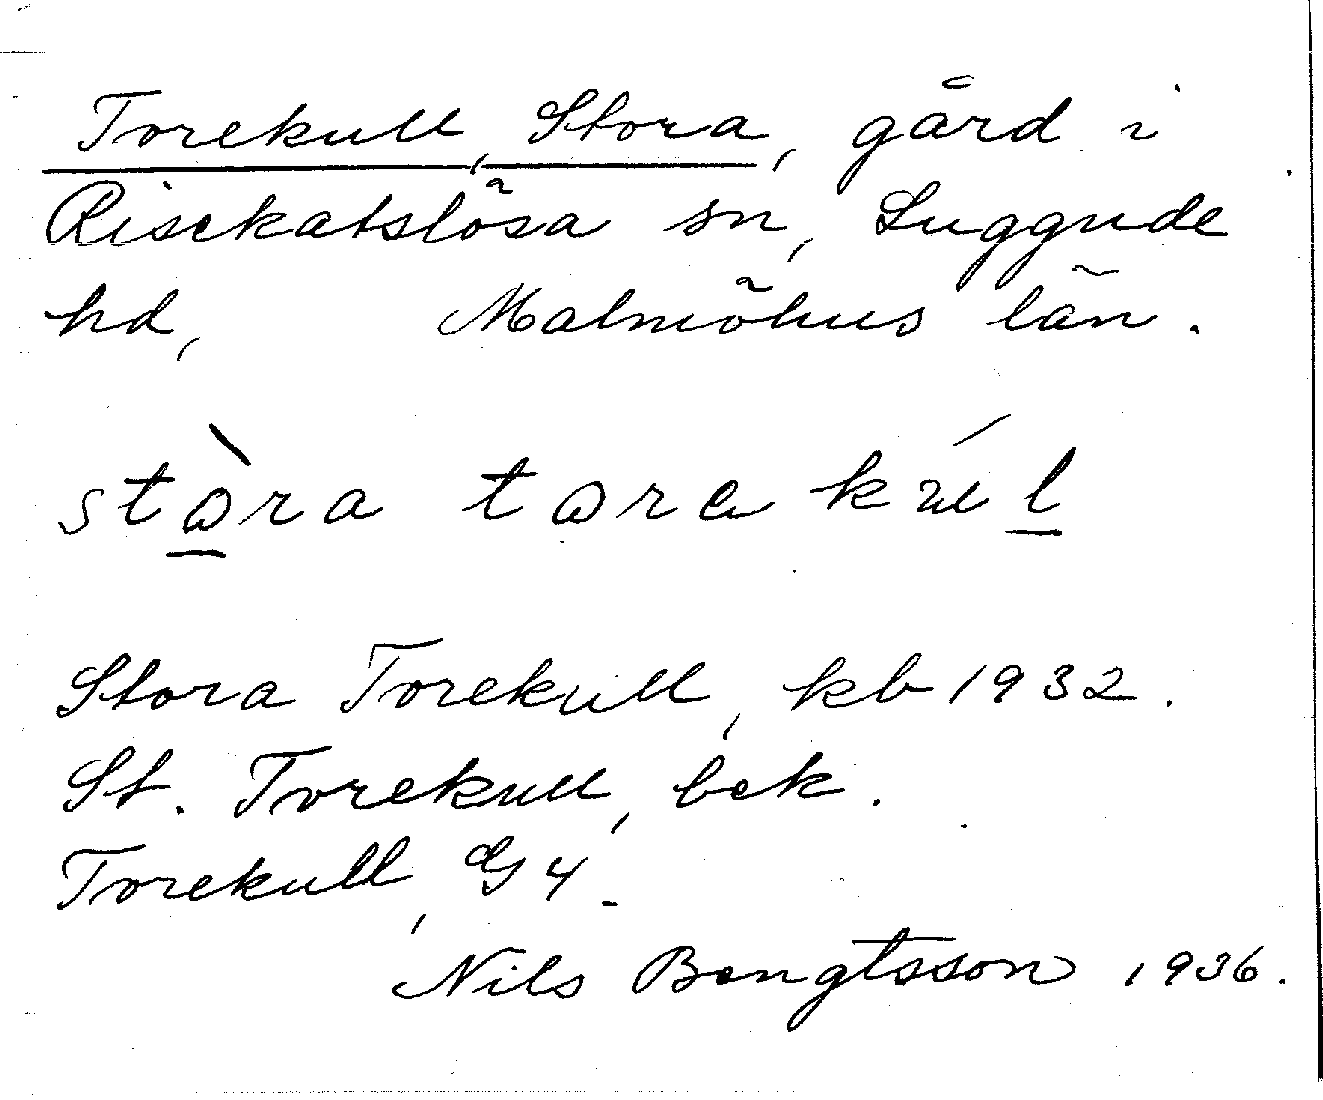 Torekull, Stora, gård i
Risekatslösa sn, Luggude
hd, Malmöhus län.
stò̠ra torekúl̠
Stora Torekull, kb 1932.
St. Torekull, bek.
Torekull, G4.
Nils Bengtsson 1936.